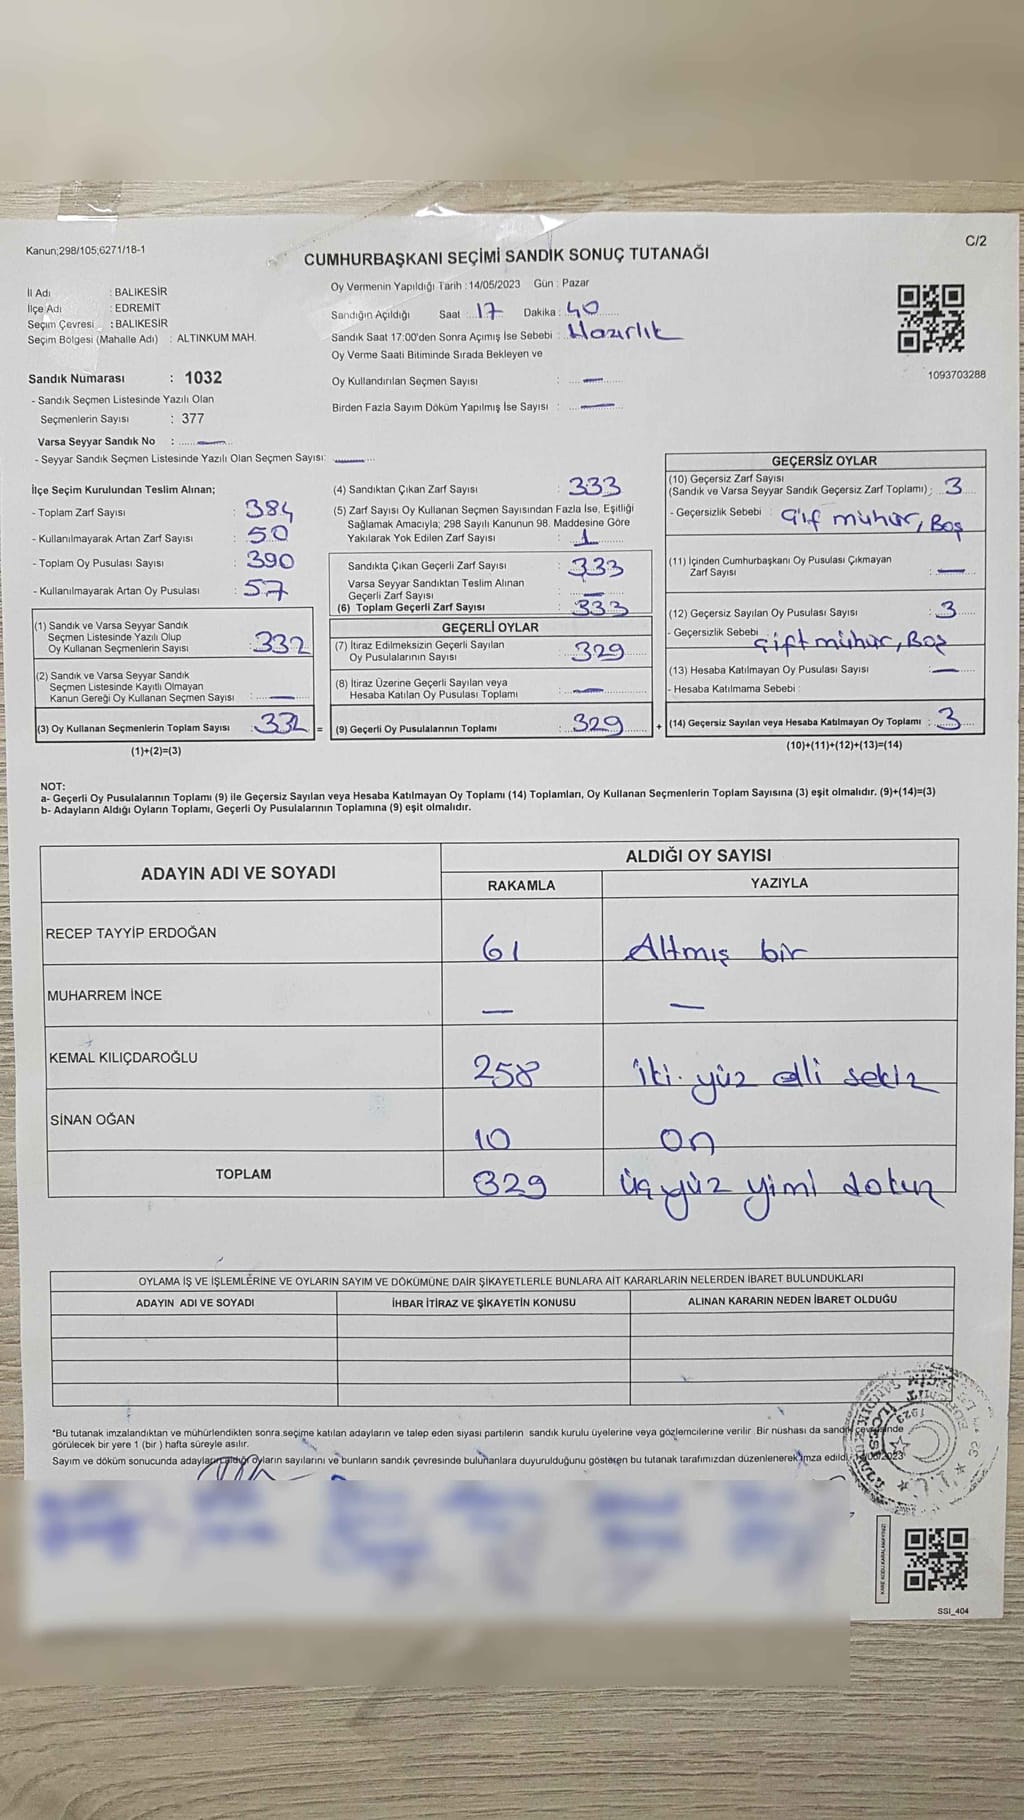 Kanun;298/105;6271/18-1
C/2
CUMHURBAŞKANI SEÇİMİ SANDIK SONUÇ TUTANAĞI
İl Adı : BALIKESİR
İlçe Adı : EDREMİT
Seçim Çevresi : BALIKESİR
Seçim Bölgesi (Mahalle Adı) : ALTINKUM MAH.
Oy Vermenin Yapıldığı Tarih : 14/05/2023 Gün : Pazar
Sandığın Açıldığı Saat : 17 Dakika : 40
Sandık Saat 17:00'den Sonra Açımış İse Sebebi : Hazırlık
Oy Verme Saati Bitiminde Sırada Bekleyen ve
Oy Kullandırılan Seçmen Sayısı : —
Birden Fazla Sayım Döküm Yapılmış İse Sayısı : —
1093703288
Sandık Numarası : 1032
- Sandık Seçmen Listesinde Yazılı Olan
Seçmenlerin Sayısı : 377
Varsa Seyyar Sandık No : —
- Seyyar Sandık Seçmen Listesinde Yazılı Olan Seçmen Sayısı: —
İlçe Seçim Kurulundan Teslim Alınan;
- Toplam Zarf Sayısı : 384
- Kullanılmayarak Artan Zarf Sayısı : 50
- Toplam Oy Pusulası Sayısı : 390
- Kullanılmayarak Artan Oy Pusulası : 57
(1) Sandık ve Varsa Seyyar Sandık
Seçmen Listesinde Yazılı Olup
Oy Kullanan Seçmenlerin Sayısı : 332
(2) Sandık ve Varsa Seyyar Sandık
Seçmen Listesinde Kayıtlı Olmayan
Kanun Gereği Oy Kullanan Seçmen Sayısı : —
(3) Oy Kullanan Seçmenlerin Toplam Sayısı : 332 =
(1)+(2)=(3)
(4) Sandıktan Çıkan Zarf Sayısı : 333
(5) Zarf Sayısı Oy Kullanan Seçmen Sayısından Fazla İse, Eşitliği
Sağlamak Amacıyla; 298 Sayılı Kanunun 98. Maddesine Göre
Yakılarak Yok Edilen Zarf Sayısı : 1
Sandıkta Çıkan Geçerli Zarf Sayısı : 333
Varsa Seyyar Sandıktan Teslim Alınan
Geçerli Zarf Sayısı : —
(6) Toplam Geçerli Zarf Sayısı : 333
GEÇERLİ OYLAR
(7) İtiraz Edilmeksizin Geçerli Sayılan
Oy Pusulalarının Sayısı : 329
(8) İtiraz Üzerine Geçerli Sayılan veya
Hesaba Katılan Oy Pusulası Toplamı : —
(9) Geçerli Oy Pusulalarının Toplamı : 329 +
GEÇERSİZ OYLAR
(10) Geçersiz Zarf Sayısı
(Sandık ve Varsa Seyyar Sandık Geçersiz Zarf Toplamı) : 3
- Geçersizlik Sebebi : Çif mühür, Boş
(11) İçinden Cumhurbaşkanı Oy Pusulası Çıkmayan
Zarf Sayısı : —
(12) Geçersiz Sayılan Oy Pusulası Sayısı : 3
- Geçersizlik Sebebi : Çift mühür, Boş
(13) Hesaba Katılmayan Oy Pusulası Sayısı : —
- Hesaba Katılmama Sebebi :
(14) Geçersiz Sayılan veya Hesaba Katılmayan Oy Toplamı : 3
(10)+(11)+(12)+(13)=(14)
NOT:
a- Geçerli Oy Pusulalarının Toplamı (9) ile Geçersiz Sayılan veya Hesaba Katılmayan Oy Toplamı (14) Toplamları, Oy Kullanan Seçmenlerin Toplam Sayısına (3) eşit olmalıdır. (9)+(14)=(3)
b- Adayların Aldığı Oyların Toplamı, Geçerli Oy Pusulalarının Toplamına (9) eşit olmalıdır.
ADAYIN ADI VE SOYADI
ALDIĞI OY SAYISI
RAKAMLA YAZIYLA
RECEP TAYYİP ERDOĞAN 61 Altmış bir
MUHARREM İNCE — —
KEMAL KILIÇDAROĞLU 258 iki yüz elli sekiz
SİNAN OĞAN 10 on
TOPLAM 329 üçyüz yimi dokuz
OYLAMA İŞ VE İŞLEMLERİNE VE OYLARIN SAYIM VE DÖKÜMÜNE DAİR ŞİKAYETLERLE BUNLARA AİT KARARLARIN NELERDEN İBARET BULUNDUKLARI
ADAYIN ADI VE SOYADI İHBAR İTİRAZ VE ŞİKAYETİN KONUSU ALINAN KARARIN NEDEN İBARET OLDUĞU
*Bu tutanak imzalandıktan ve mühürlendikten sonra seçime katılan adayların ve talep eden siyasi partilerin sandık kurulu üyelerine veya gözlemcilerine verilir. Bir nüshası da sandık çevresinde
görülecek bir yere 1 (bir ) hafta süreyle asılır.
Sayım ve döküm sonucunda adayların aldığı oyların sayılarını ve bunların sandık çevresinde bulunanlara duyurulduğunu gösteren bu tutanak tarafımızdan düzenlenerek imza edildi.
SSI_404